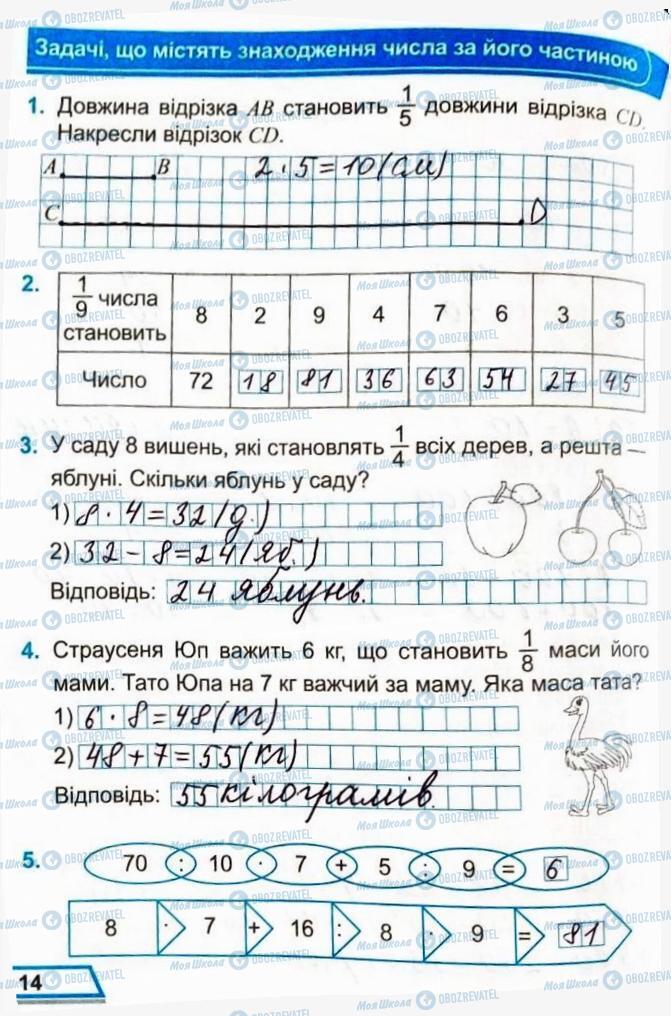 Задачі, що містять знаходження числа за його частиною
1. Довжина відрізка AB становить 1/5 довжини відрізка CD.
Накресли відрізок CD.
A B 2 · 5 = 10 (см)
C D
2. 1/9 числа становить 8 2 9 4 7 6 3 5
Число 72 18 81 36 63 54 27 45
3. У саду 8 вишень, які становлять 1/4 всіх дерев, а решта —
яблуні. Скільки яблунь у саду?
1) 8 · 4 = 32 (д.)
2) 32 - 8 = 24 (яб.)
Відповідь: 24 яблунь.
4. Страусеня Юп важить 6 кг, що становить 1/8 маси його
мами. Тато Юпа на 7 кг важчий за маму. Яка маса тата?
1) 6 · 8 = 48 (кг)
2) 48 + 7 = 55 (кг)
Відповідь: 55 кілограмів.
5. 70 : 10 · 7 + 5 : 9 = 6
8 · 7 + 16 : 8 · 9 = 81
14
Моя Школа OBOZREVATEL